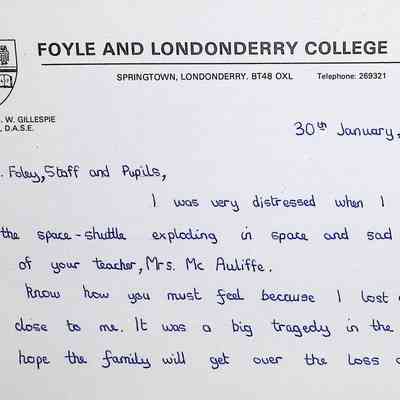 FOYLE AND LONDONDERRY COLLEGE
SPRINGTOWN, LONDONDERRY. BT48 OXL Telephone: 269321
. W. GILLESPIE
, D.A.S.E.
30th January,
. Foley, Staff and Pupils,
I was very distressed when I
the space-shuttle exploding in space and sad
of your teacher, Mrs. Mc Auliffe.
know how you must feel because I lost
close to me. It was a big tragedy in the
hope the family will get over the loss